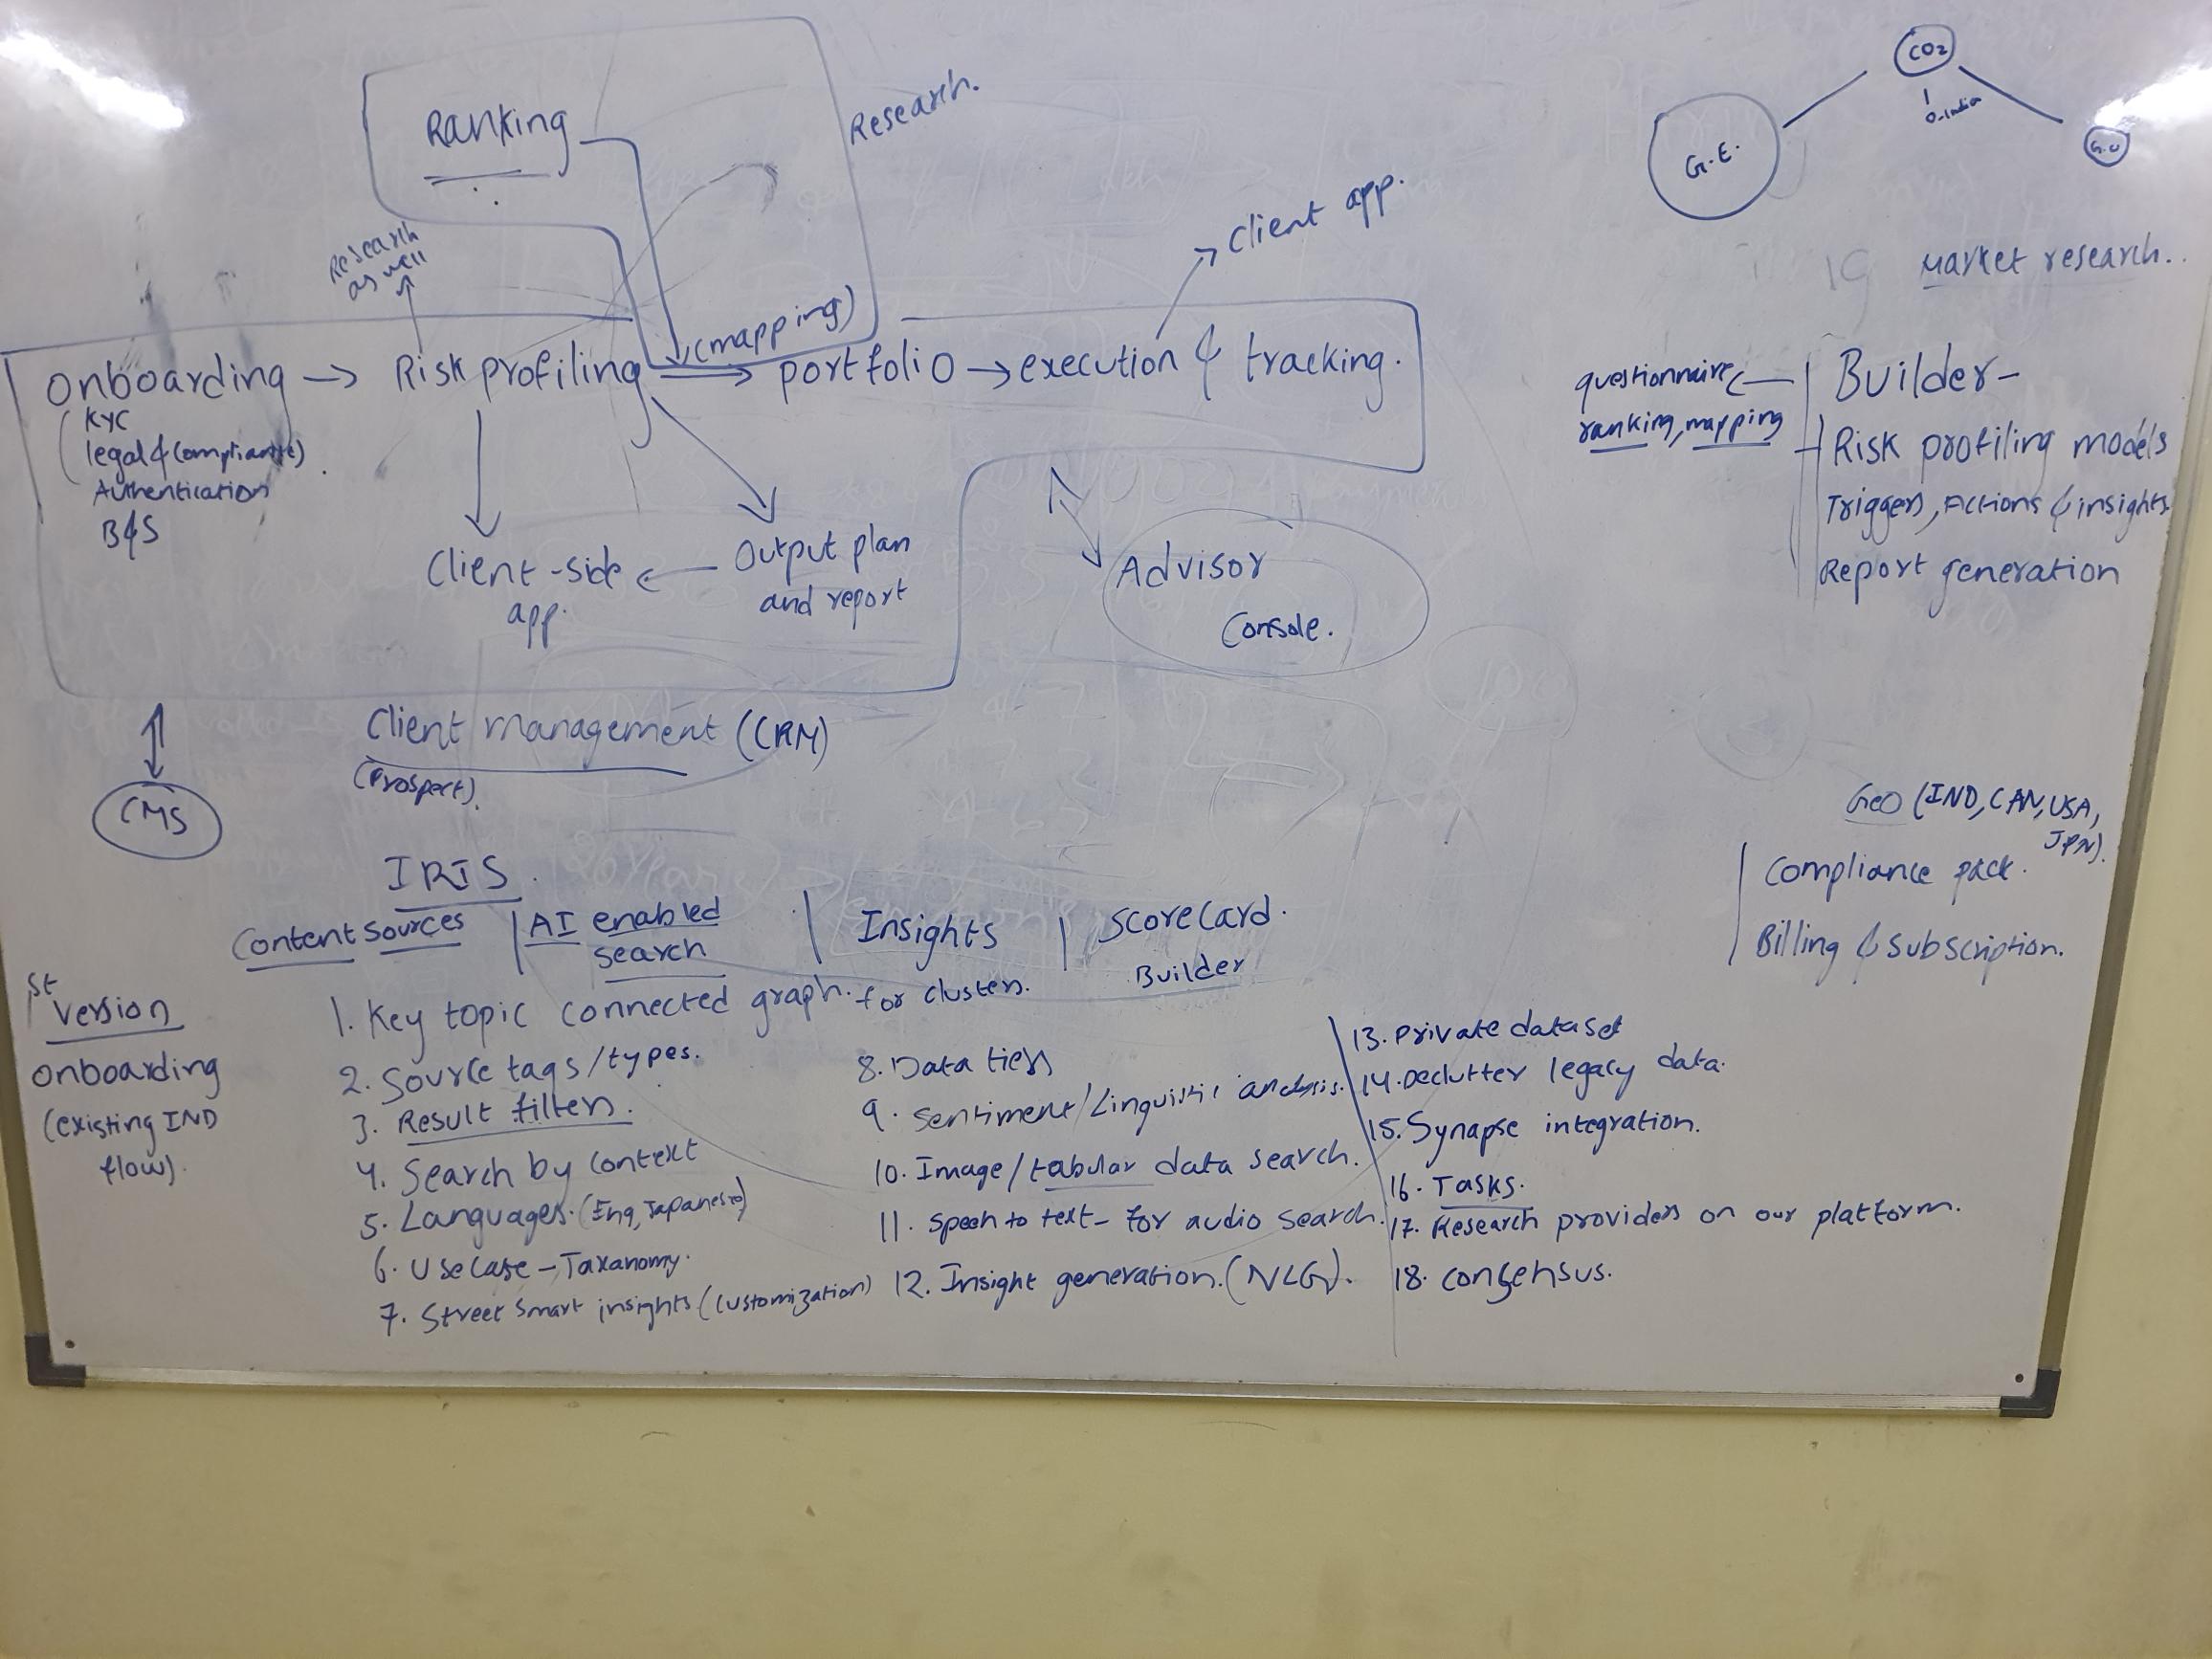 Ranking
Research.
Research
as well
Client app.
(mapping)
Onboarding → Risk profiling → portfolio → execution & tracking.
KYC
legal & Compliance)
Authentication
B&S
Client-side
app.
Output plan
and report
Advisor
Console.
Client Management (CRM)
(Prospect).
CMS
CO2
G.E.
Market research..
questionnaire,
ranking, mapping
Builder-
Risk profiling models
Triggers, Actions & insights
Report generation
Geo (IND, CAN, USA,
JPN).
Compliance pack.
Billing & Subscription.
IRIS.
Content sources | AI enabled
search
Insights
Scorecard.
Builder
1st
Version
Onboarding
(existing IND
flow).
1. Key topic connected graph. for clusters.
2. Source tags/types.
3. Result filters.
4. Search by context
5. Languages. (Eng, Japanese)
6. Use Case - Taxanomy.
7. Street Smart insights (Customization)
8. Data tiers
9. Sentiment/Linguistic analysis.
10. Image/tabular data search.
11. Speech to text- for audio search.
12. Insight generation. (NLG).
13. Private dataset
14. Declutter legacy data.
15. Synapse integration.
16. Tasks.
17. Research providers on our platform.
18. Consensus.